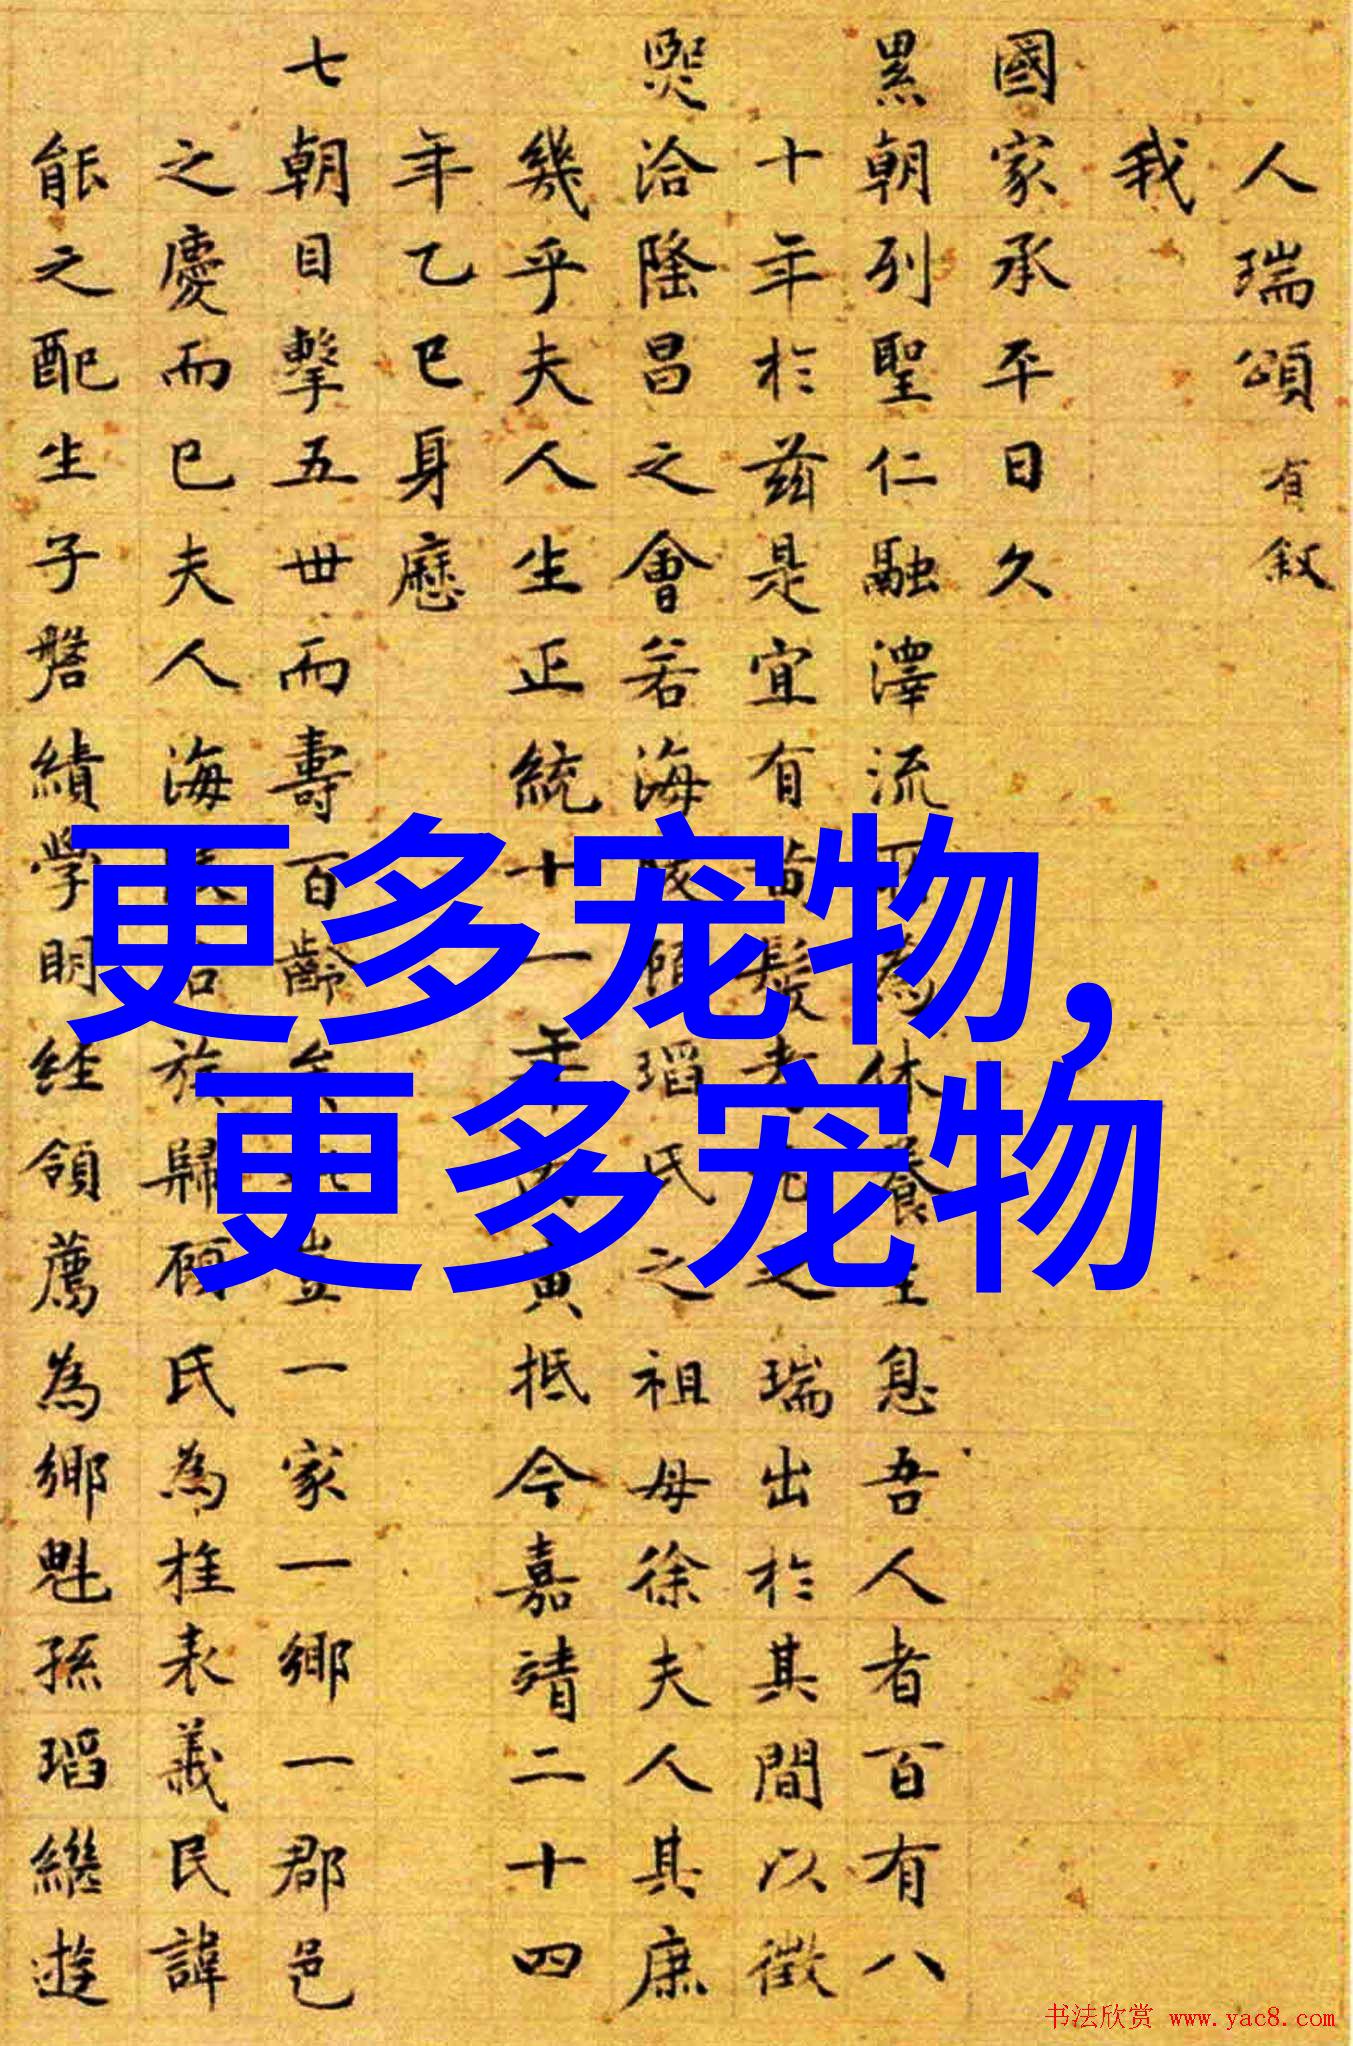 人瑞頌有敘
我
國家承平日久
累朝列聖仁融澤流 休養生息吾人者百有八
十年於茲是宜有 髮 之瑞出於其間以徵
熙洽隆昌之會若海 瑫氏之祖母徐夫人其庶
幾乎夫人生正統十一年 寅抵今嘉靖二十四
年乙巳身歷
七朝目擊五世而壽百齡 一家一鄉一郡邑
之慶而已夫人海 族歸顧氏為桂表義民諱
能之配生子磐績學明經領薦為鄉魁孫瑫繼遊
更多宠物，
更多宠物
书法欣赏 www.yac8.com